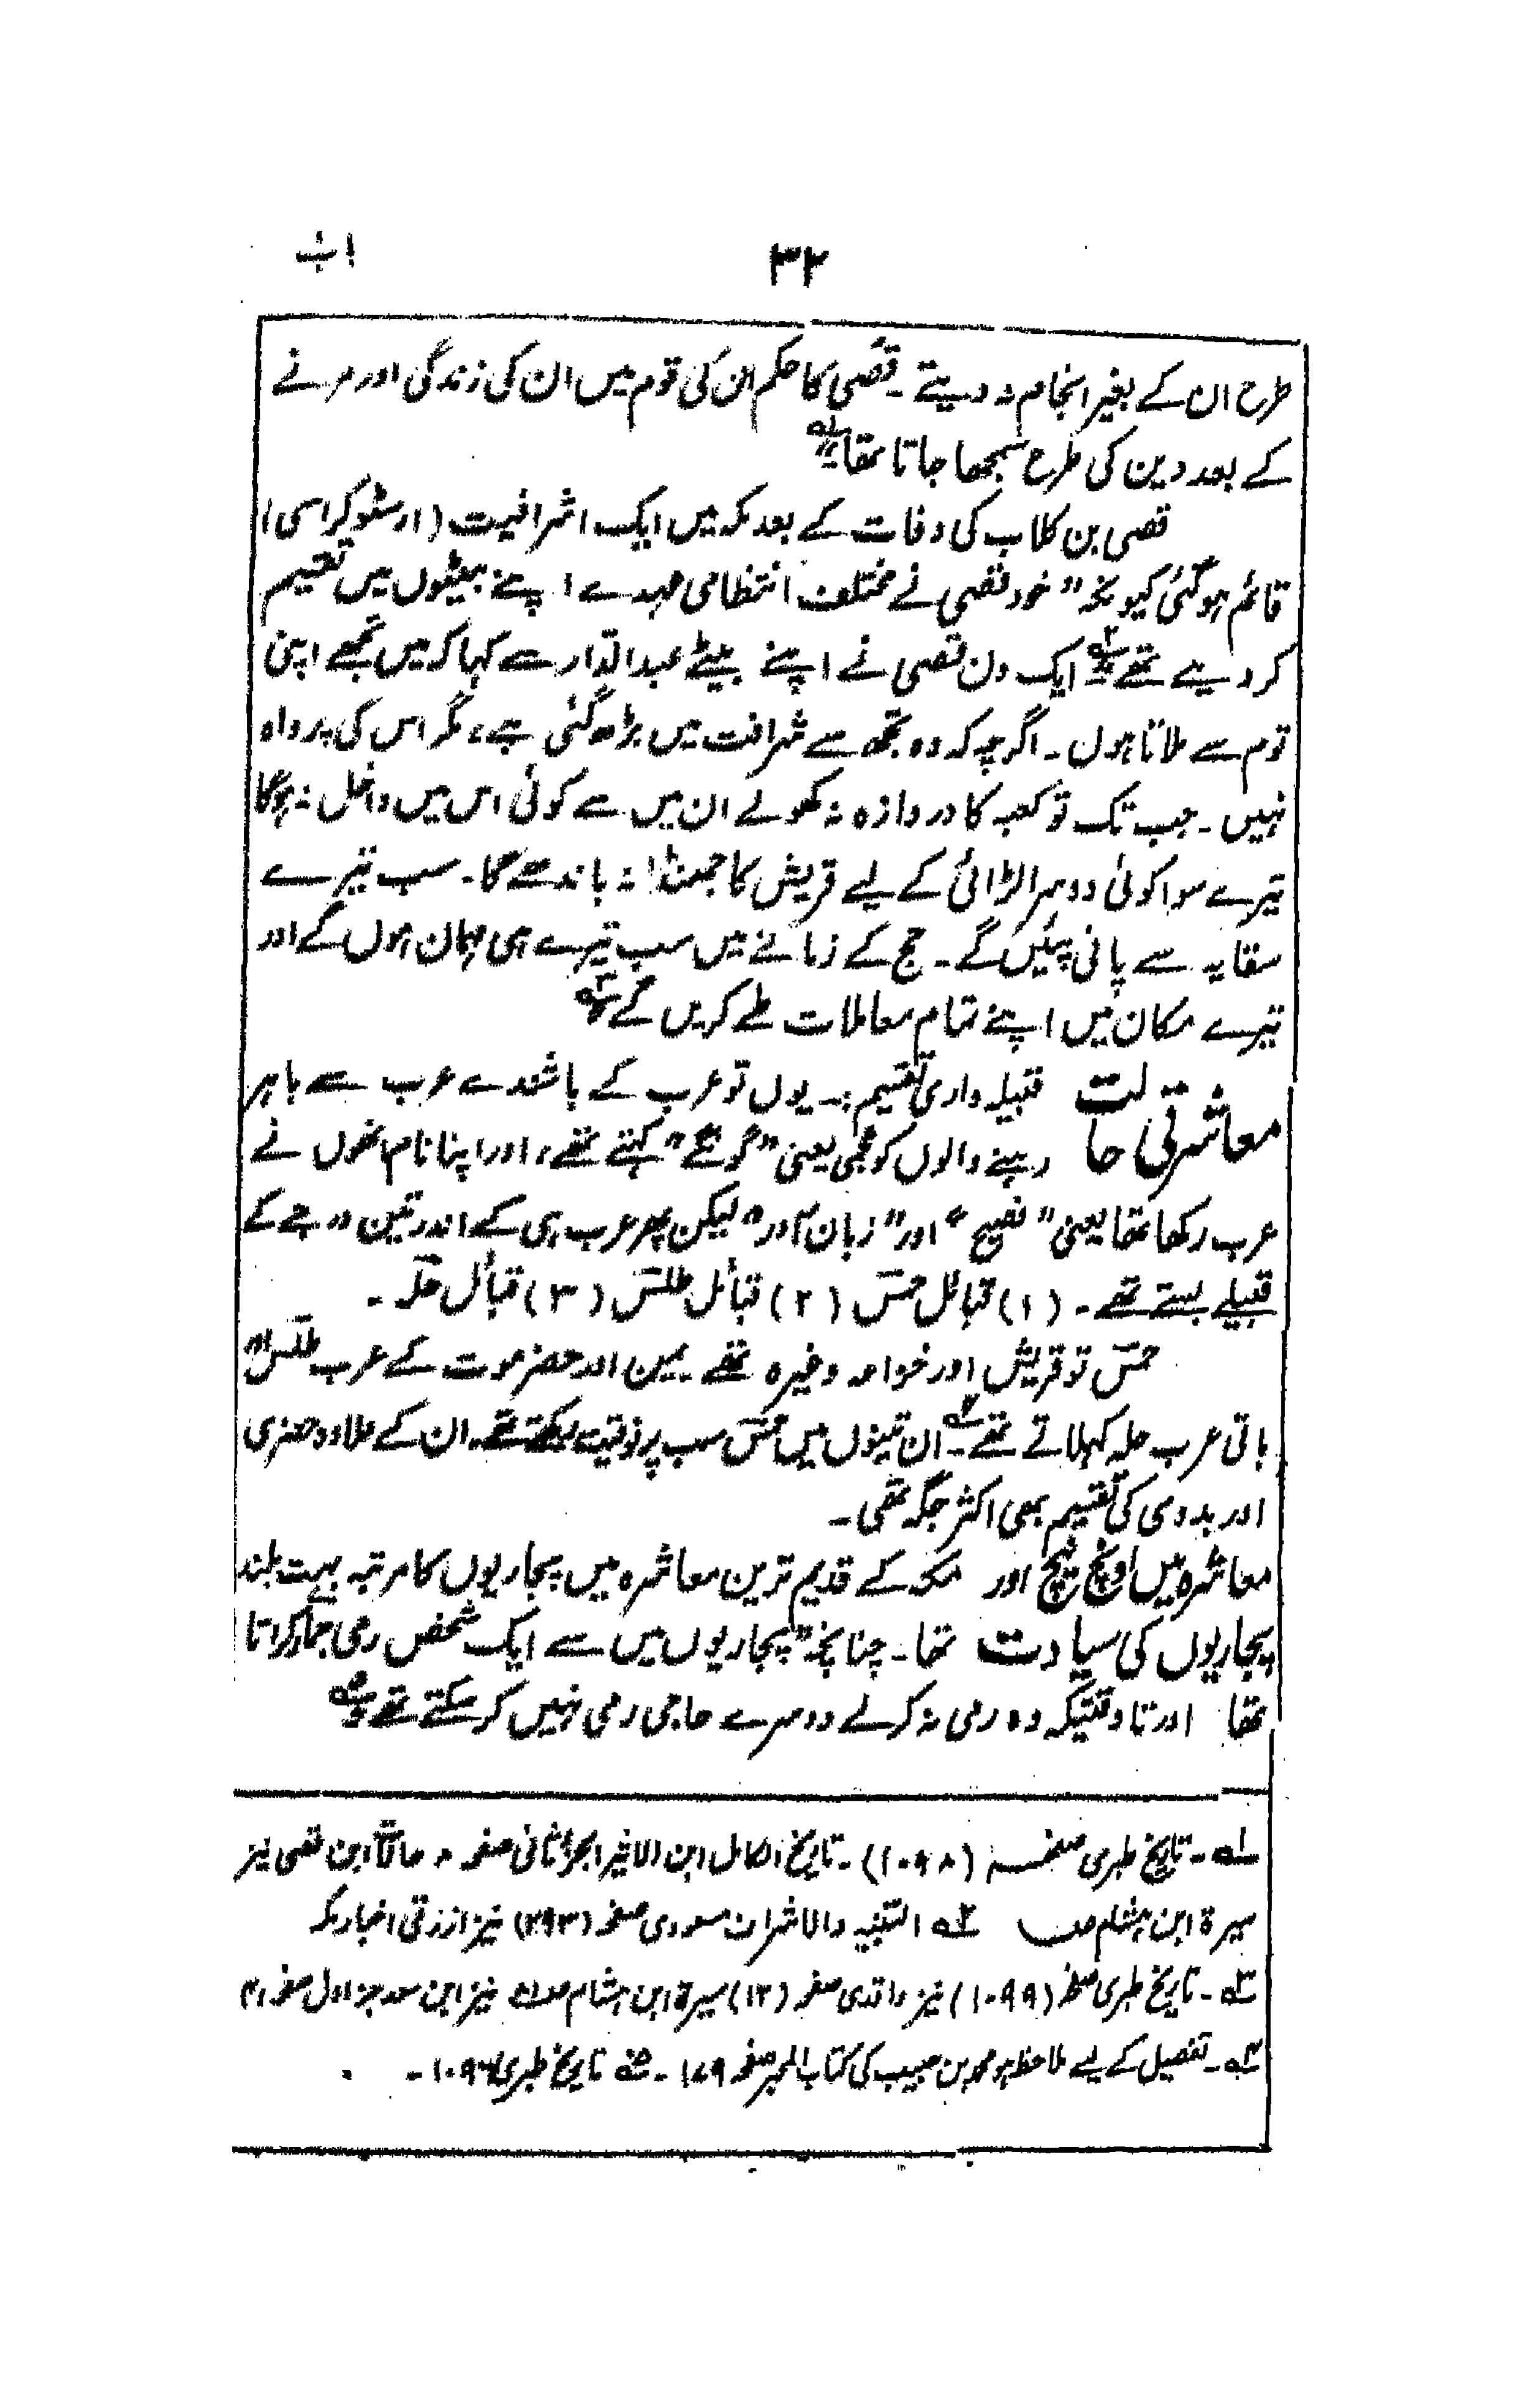 ۳۲
طرح ان کے بغیر انجام نہ دیتے۔ قصَی کا حکم ان کی قوم میں ان کی زندگی اور مرنے
کے بعد دین کی طرح سمجھا جاتا تھا۔؎۱
قصی بن کلاب کی وفات کے بعد مکہ میں ایک اشرافیت (ارسٹوکراسی)
قائم ہوگئی کیونکہ "خود قصی نے مختلف انتظامی عہدے اپنے بیٹوں میں تقسیم
کر دیے تھے"؎۲ ایک دن قصی نے اپنے بیٹے عبدالدّار سے کہا کہ میں تجھے اپنی
قوم سے ملاتا ہوں۔ اگرچہ کہ وہ تجھ سے شرافت میں بڑھ گئی ہے، مگر اس کی پرواہ
نہیں۔ جب تک تو کعبہ کا دروازہ نہ کھولے ان میں سے کوئی اس میں داخل نہ ہوگا
تیرے سوا کوئی دوسرا لڑائی کے لیے قریش کا جھنڈا نہ باندھے گا۔ سب تیرے
سقایہ سے پانی پئیں گے۔ حج کے زمانے میں سب تیرے ہی مہمان ہوں گے اور
تیرے مکان میں اپنے تمام معاملات طے کریں گے؎۳
معاشرتی حالت قبیلہ داری تقسیم:۔ یوں تو عرب کے باشندے عرب سے باہر
رہنے والوں کو عجمی یعنی "گونگے" کہتے تھے، اور اپنا نام انھوں نے
عرب رکھا تھا یعنی "فصیح" اور "زبان آور" لیکن پھر عرب ہی کے اندر تین درجے کے
قبیلے بستے تھے۔ (۱) قبائل حمسَ (۲) قبائل طلسَ (۳) قبائل حلّہ۔
حمسَ تو قریش اور خزاعہ وغیرہ تھے یمین اور حضرموت کے عرب طلسَ"
باقی عرب حلہ کہلاتے تھے۔؎۴ ان تینوں میں حمسَ سب پر فوقیت رکھتے تھے۔ ان کے علاوہ حضری
اور بدوی کی تقسیم بھی اکثر جگہ تھی۔
معاشرہ میں اونچ نیچ اور مکہ کے قدیم ترین معاشرہ میں پجاریوں کا مرتبہ بہت بلند
پجاریوں کی سیادت تھا۔ چنانچہ "پجاریوں میں سے ایک شخص رمی جمار کراتا
تھا اور تاوقتیکہ وہ رمی نہ کرلے دوسرے حاجی رمی نہیں کر سکتے تھے؎۵
؎۱۔ تاریخ طبری صفحہ (۱۰۹۸)۔ تاریخ الکامل ابن الاثیر الجزء الثانی صفحہ ۸ حالات ابن قصی نیز
سیرۃ ابن ہشام ؎۲ التنبیہ والاشراف مسعودی صفحہ (۲۹۳) نیز ازرقی اخبار مکہ
؎۳۔ تاریخ طبری صفحہ (۱۰۹۹) نیز واقدی صفحہ (۱۲) سیرۃ ابن ہشام نیز ابن سعد جزء اول صفحہ ۴۱
؎۴۔ تفصیل کے لیے ملاحظہ ہو محمد بن حبیب کی کتاب المحبر صفحہ ۱۷۹۔ ؎۵ تاریخ طبری ۱۰۹۶۔